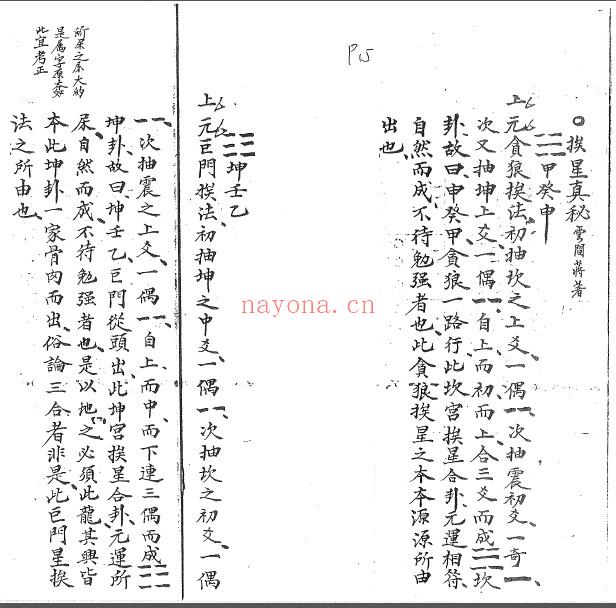 P15
挨星真秘 雲間蔣著
☵甲癸申
上元貪狼挨法初抽坎之上爻一偶⚋次抽震初爻一奇⚊
次又抽坤上爻一偶⚋自上而初而上合三爻而成☵坎
卦故曰申癸甲貪狼一路行此坎宮挨星合卦元運相符
自然而成不待勉强者也此貪狼挨星之本本源源所由
出也
☷坤壬乙
上元巨門挨法初抽坤之中爻一偶⚋次抽坎之初爻一偶
⚋次抽震之上爻一偶⚋自上而中而下連三偶而成☷
坤卦故曰坤壬乙巨門從頭出此坤宮挨星合卦元運所
自然而成不待勉强者也是以地之必須此龍其興皆
本此坤卦一家骨肉而出俗論三合者非是此巨門星挨
法之所由也
是屬字原
此宜考正
nayona.cn